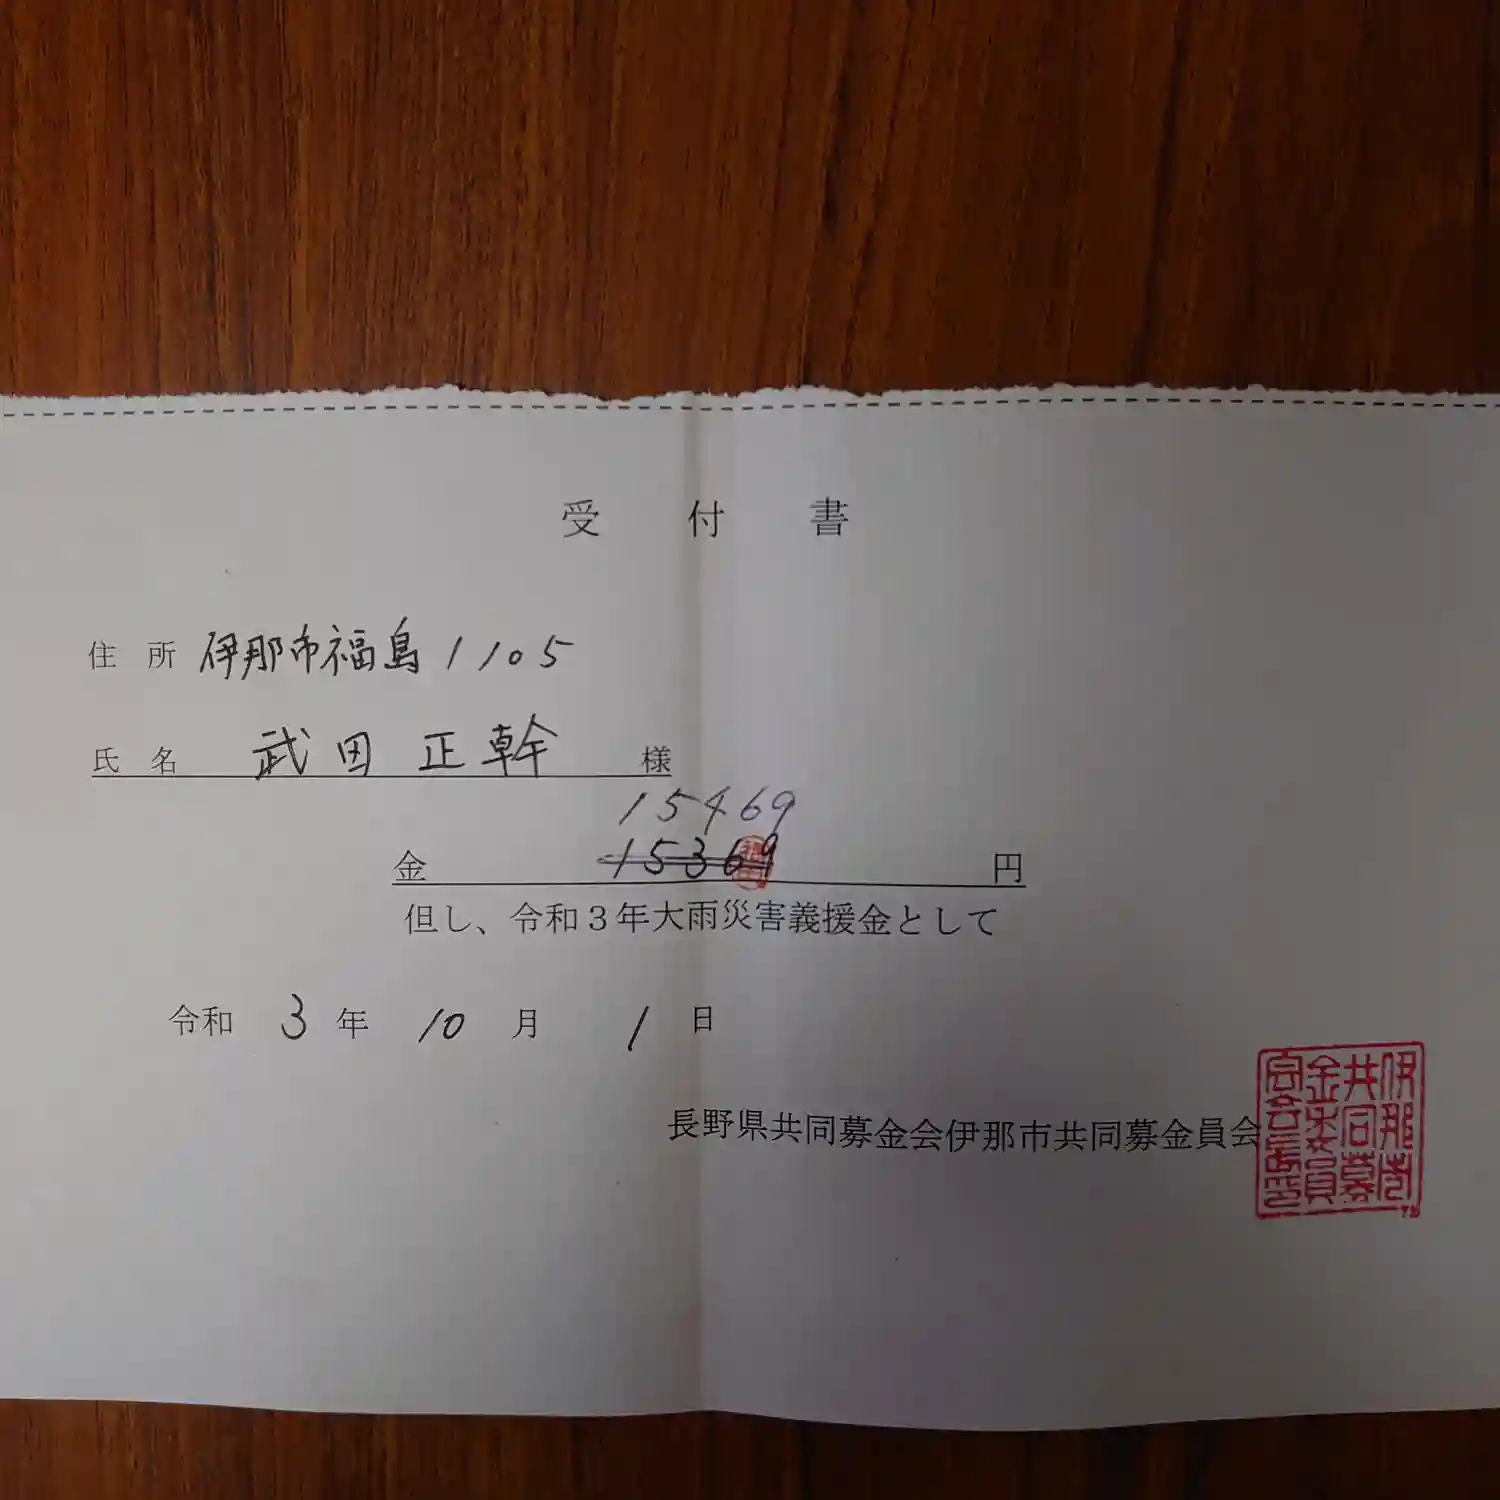 受付書
住所 伊那市福島1105
氏名 武田 正幹 様
15469
金 15369 円
但し、令和3年大雨災害義援金として
令和 3 年 10 月 1 日
長野県共同募金会伊那市共同募金員会
伊那市
共同募
金委員
会会長印